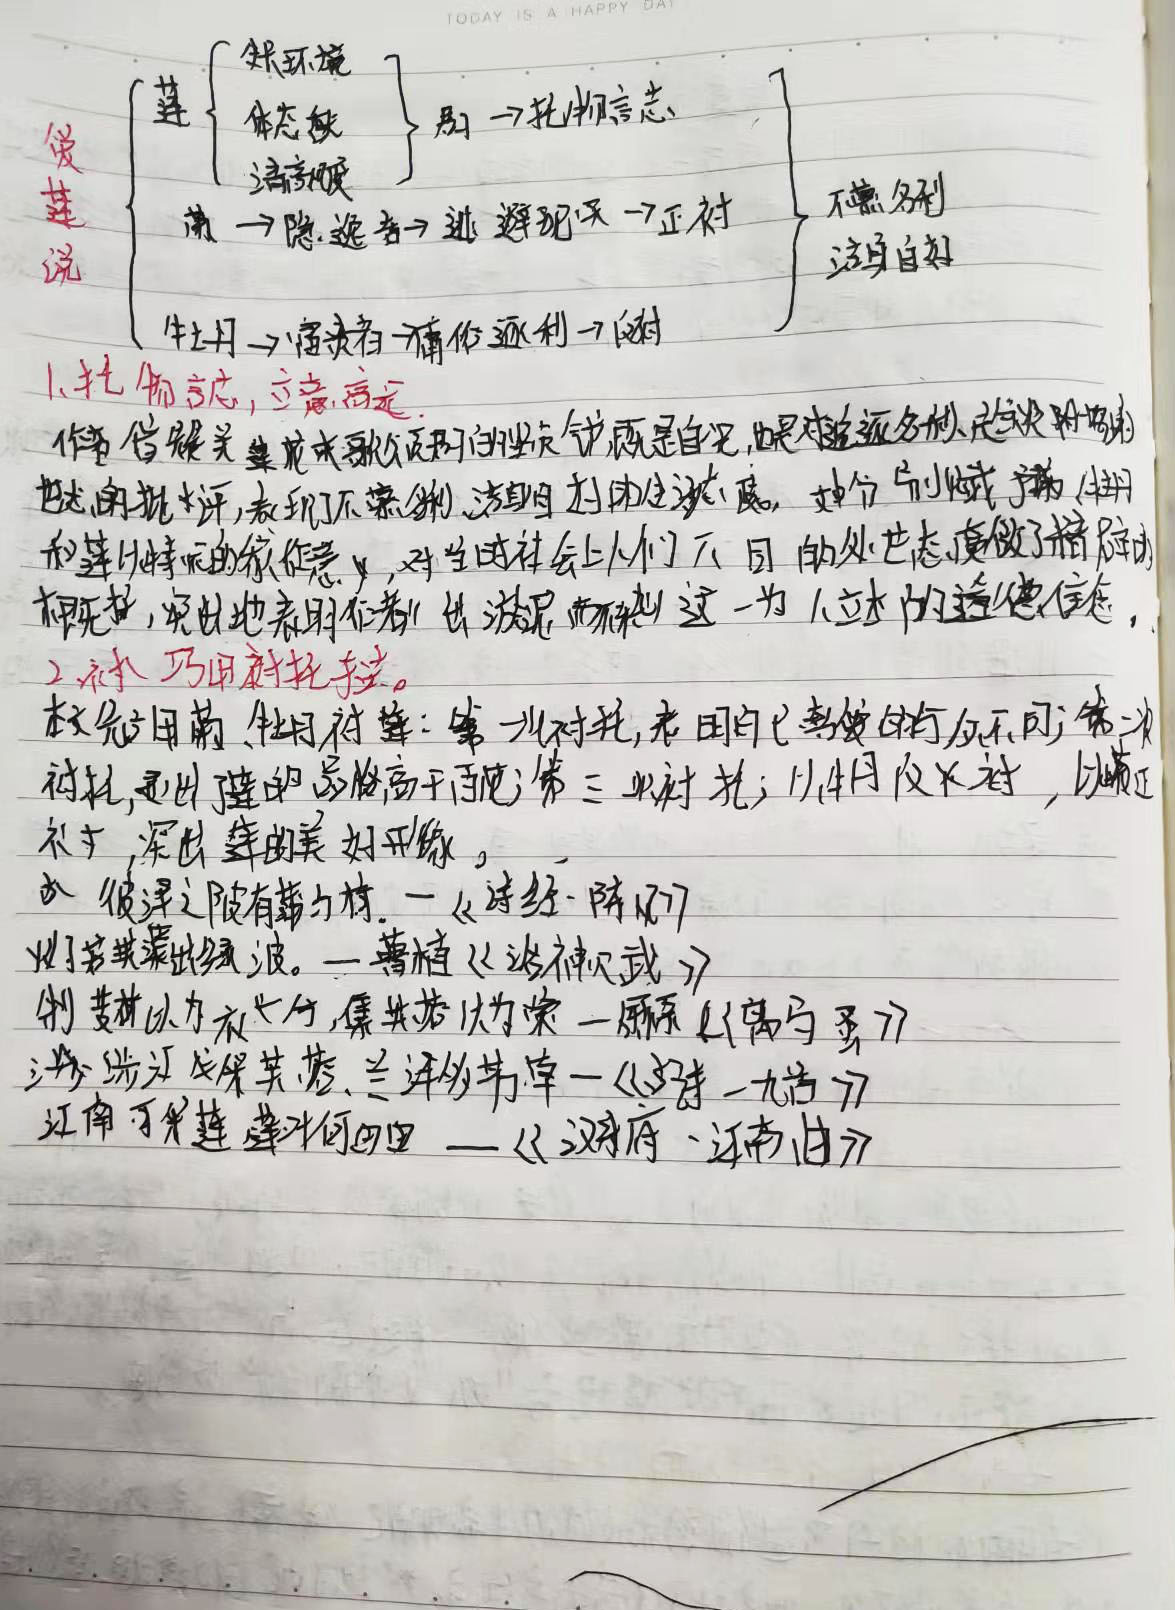 TODAY IS A HAPPY DAY
爱莲说
莲
环境
体态
→托物言志
菊→隐逸者→逃避现实→正衬
牡丹→富贵者→逐利→反衬
不慕名利
洁身自好
1.托物言志,立意高远.
作者 既是自况,也是对追逐名利、
世态的批评,表现了不慕名利、洁身自好的生活态度。文中分别赋予菊、牡丹
和莲以特定的象征意义,对当时社会上人们不同的处世态度做了精辟的
概括,突出地表明作者 出淤泥而不染 这一为人立本的道德信念.
2. 巧用衬托手法。
本文先后用菊、牡丹衬莲:第一次衬托,表明自己 不同;第二次
衬托,突出了莲的品格高于百花;第三次衬托;以牡丹反衬,以菊正
衬,深出莲的美好形象。
彼泽之陂有蒲与荷.一《诗经·陈风》
灼若芙蕖出绿波。一曹植《洛神 》
制芰荷以为衣 ,集芙蓉以为裳一屈原《离 骚》
涉江采芙蓉、兰泽多芳草一《古诗一九首》
江南可采莲 莲叶何田田——《汉乐府·江南曲》